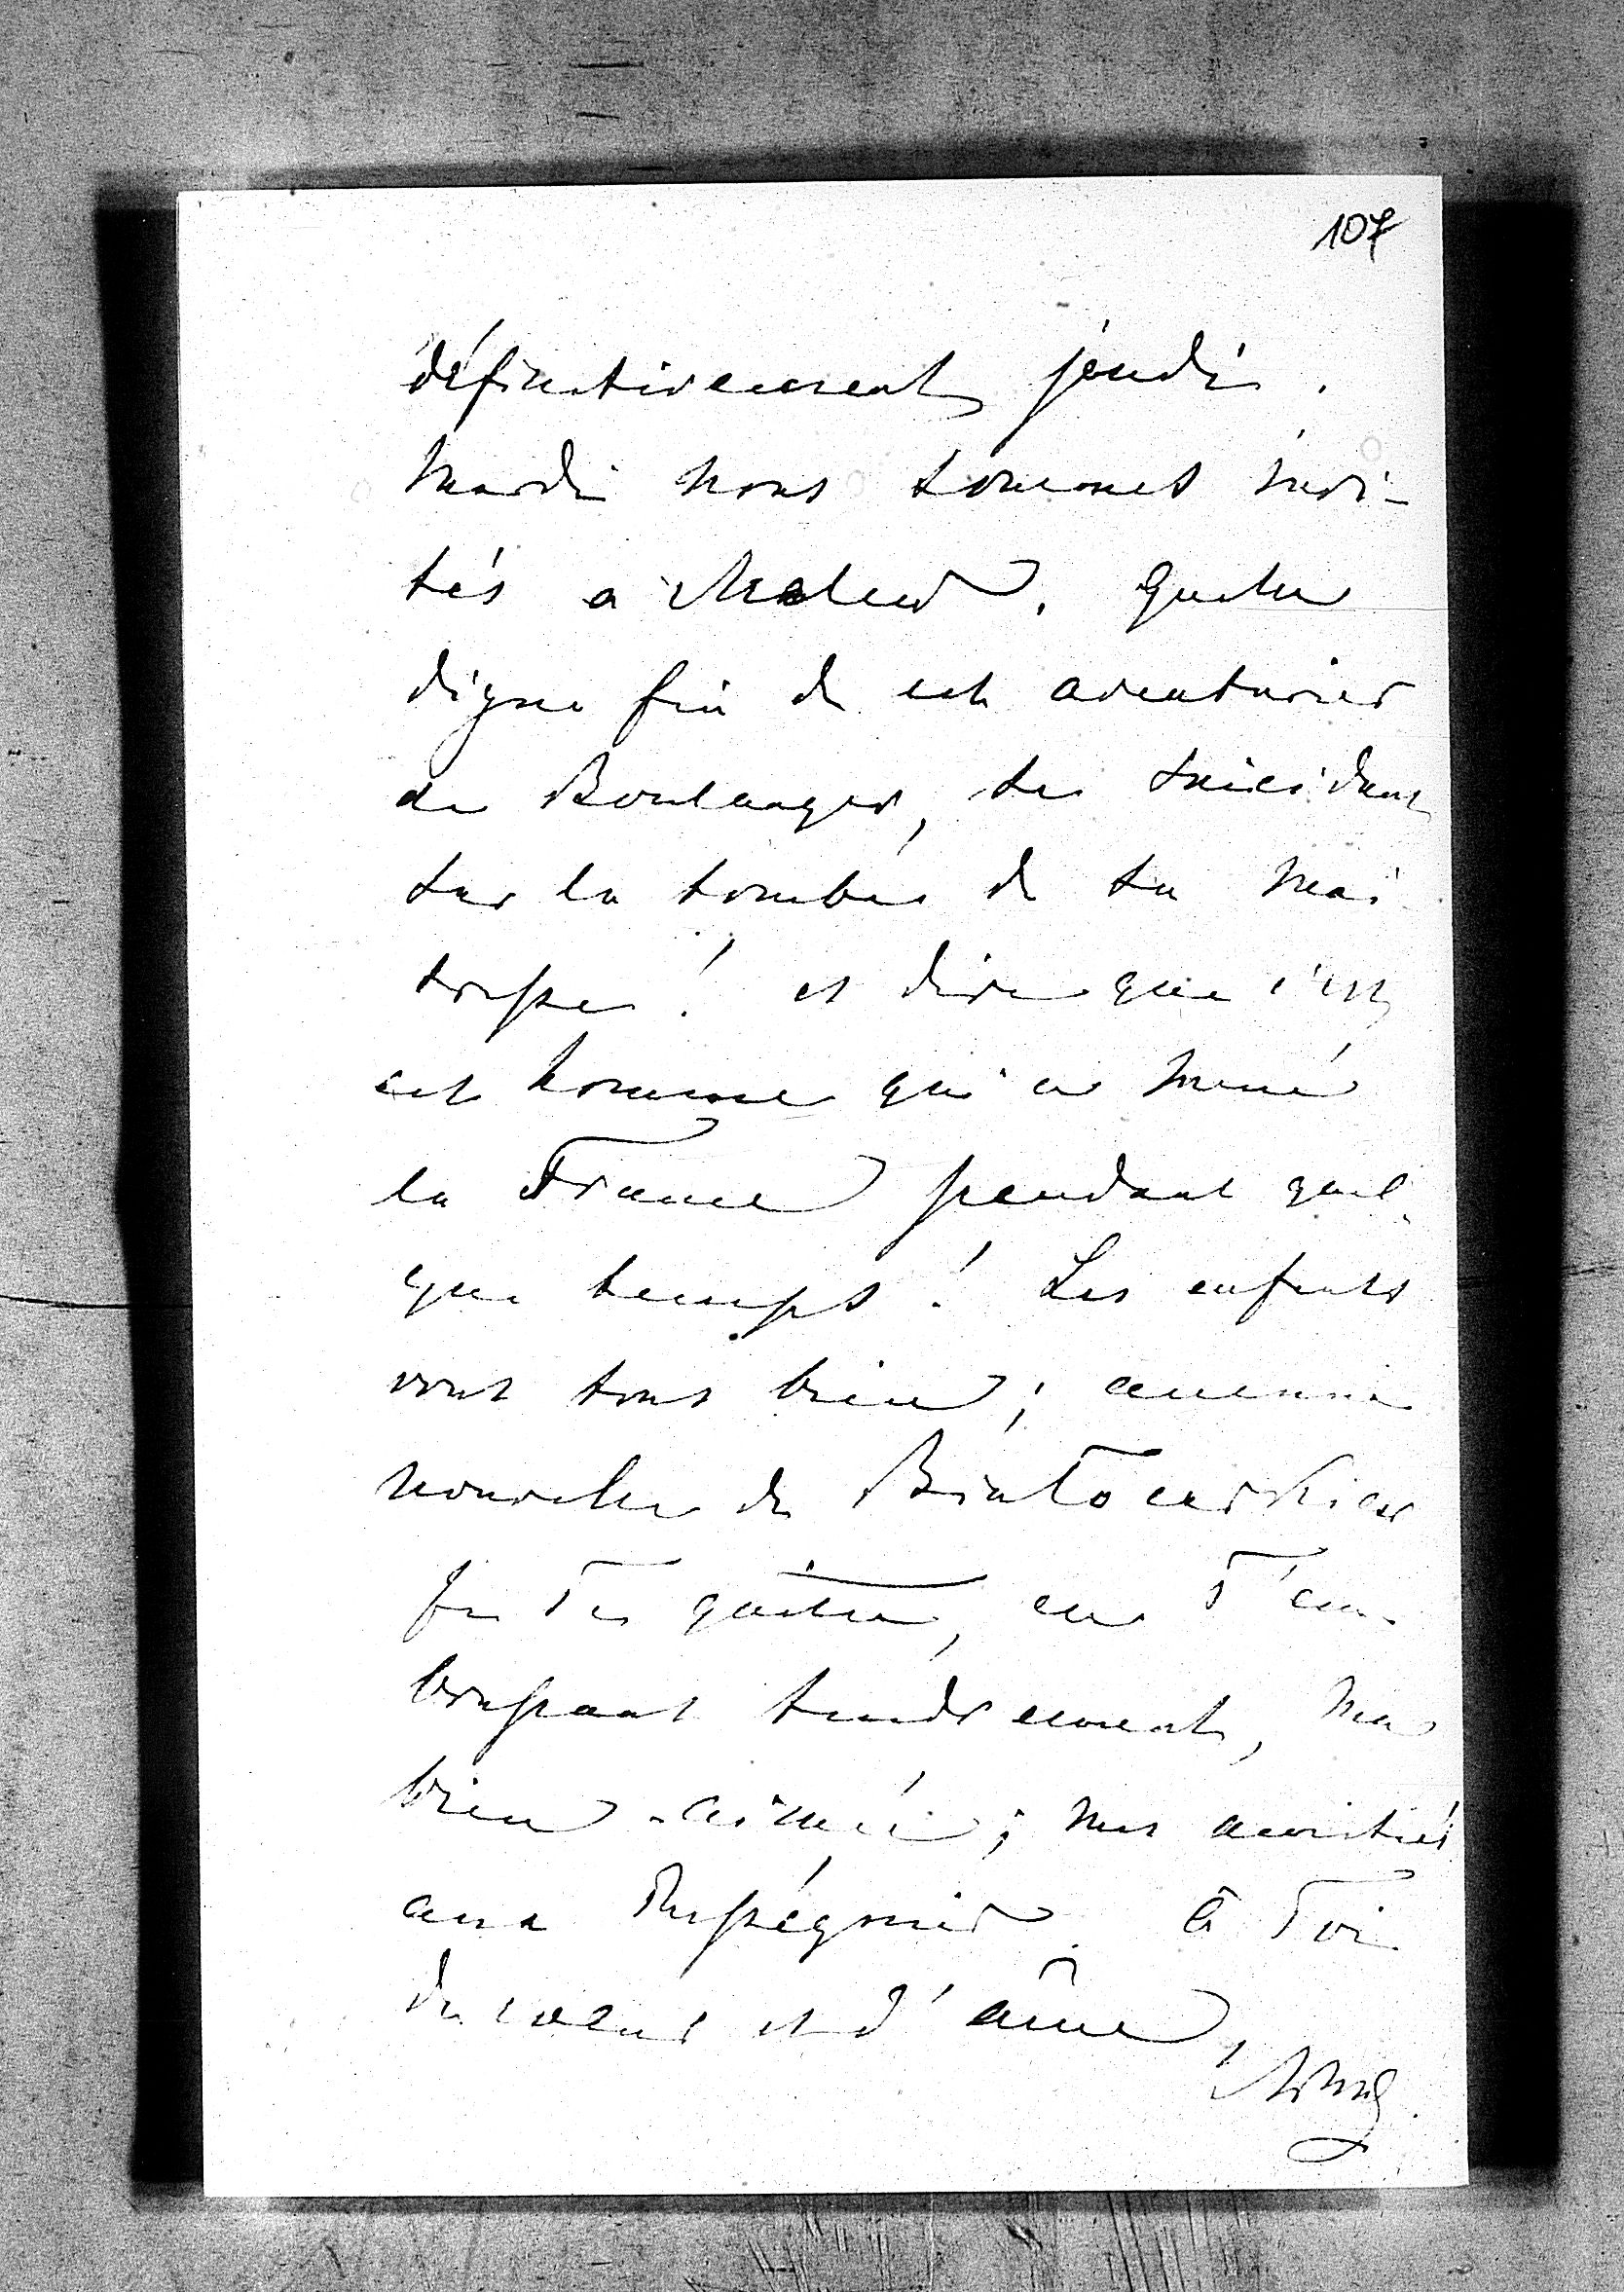 107
définitivement jeudi.
Mardi nous sommes invi-
tés a . Quelle
digne fin de cet aventurier
de Boulanger, se suicidant
sur la tombe de sa maî
tresse! et dire que c'est
cet homme qui a mené
la France pendant quel
que temps! Les enfants
vont tous bien; aucune
nouvelle de
Je Te quitte, en T'em
brassant tendrement, ma
bien-aimée; mes amitiés
aux à Toi
de cœur et d'âme,